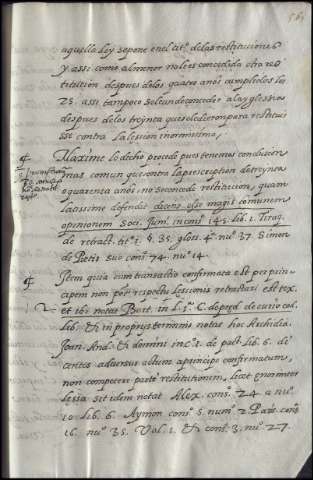 561
aquella ley se pone en el titº. de las restituciones
y assi como al menor no le es concedida otra res
titution despues de los quatro años cumplidos los
25. assi tampoco se le un de conceder a la yglesia
despues de los treynta que se le dieron para restituir
sse contra la lession inormissima,
Maxime lo dicho procede pues tenemos conclusion
mas comun que contra la prescription de treynta
o quarenta años no se concede restitucion, quam
latissime defendit dicens esse magis comunem
opinionem Soci. Junˢ. in consˡ. 145. lib. 1. Tiraq.
de retract. titº. 1. §. 35. gloss. 4ᵃ. nuº. 37. Simon
de Pretis suo consº. 74. nuº. 14.
Item quia cum transactio confirmata est per prin
cipem non potest respectu lessionis retractari est tex.
et ibi notat Bart. in l. 1ᵃ. C.
lib. & in proprys terminis notat hoc Archidia.
Joan. And. & domini in cº. 1. de lib. 6. di
centes adversus actum a principe confirmatum,
non competere parti restitutionem, licet enormiter
lesia sit idem notat Alex. consº. 24. a nuº.
10. lib. 6. Aymon consº. 5. numº. 2. Paris. consº.
16. nuº. 35. Vol. 1. & consº. 3. nuº. 27.